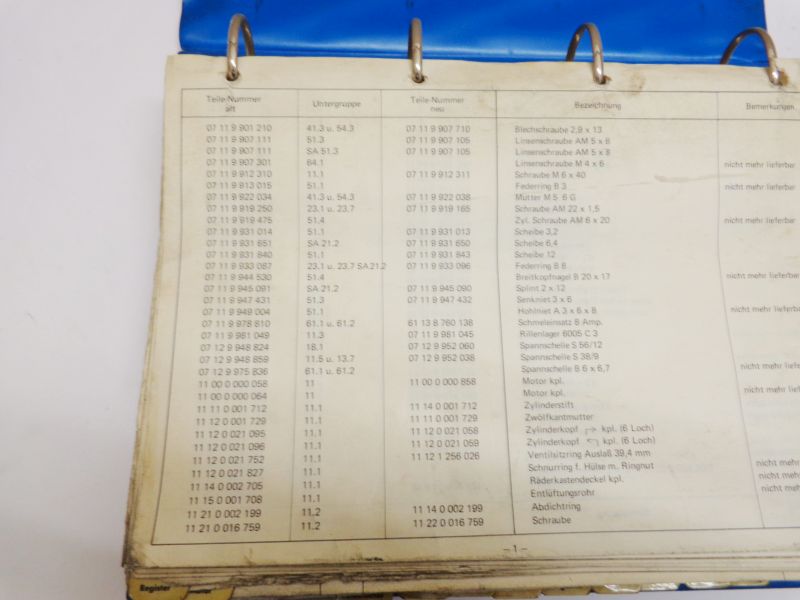 Teile-Nummer alt Untergruppe Teile-Nummer neu Bezeichnung Bemerkungen
07 11 9 901 210 41.3 u. 54.3 07 11 9 907 710 Blechschraube 2,9 x 13
07 11 9 907 111 51.3 07 11 9 907 105 Linsenschraube AM 5 x 8
07 11 9 907 111 SA 51.3 07 11 9 907 105 Linsenschraube AM 5 x 8
07 11 9 907 301 64.1 Linsenschraube M 4 x 6 nicht mehr lieferbar
07 11 9 912 310 11.1 07 11 9 912 311 Schraube M 6 x 40
07 11 9 913 015 51.1 Federring B 3 nicht mehr lieferbar
07 11 9 922 034 41.3 u. 54.3 07 11 9 922 038 Mutter M 5 6 G
07 11 9 919 250 23.1 u. 23.7 07 11 9 919 165 Schraube AM 22 x 1,5
07 11 9 919 475 51.4 Zyl. Schraube AM 6 x 20 nicht mehr lieferbar
07 11 9 931 014 51.1 07 11 9 931 013 Scheibe 3,2
07 11 9 931 651 SA 21.2 07 11 9 931 650 Scheibe 6,4
07 11 9 931 840 51.1 07 11 9 931 843 Scheibe 12
07 11 9 933 087 23.1 u. 23.7 SA 21.2 07 11 9 933 096 Federring B 8
07 11 9 944 530 51.4 Breitkopfnagel B 20 x 17 nicht mehr lieferbar
07 11 9 945 091 SA 21.2 07 11 9 945 090 Splint 2 x 12
07 11 9 947 431 51.3 07 11 9 947 432 Senkniet 3 x 6
07 11 9 949 004 51.1 Hohlniet A 3 x 6 x 8 nicht mehr lieferbar
07 11 9 978 810 61.1 u. 61.2 61 13 8 760 138 Schmelzeinsatz 8 Amp.
07 11 9 981 049 11.3 07 11 9 981 045 Rillenlager 6005 C 3
07 12 9 948 824 18.1 07 12 9 952 060 Spannschelle S 56/12
07 12 9 948 859 11.5 u. 13.7 07 12 9 952 038 Spannschelle S 38/9
07 12 9 975 836 61.1 u. 61.2 Spannschelle B 6 x 6,7 nicht mehr liefe
11 00 0 000 058 11 11 00 0 000 858 Motor kpl.
11 00 0 000 064 11 Motor kpl. nicht mehr liefe
11 11 0 001 712 11.1 11 14 0 001 712 Zylinderstift
11 12 0 001 729 11.1 11 11 0 001 729 Zwölfkantmutter
11 12 0 021 095 11.1 11 12 0 021 058 Zylinderkopf kpl. (6 Loch)
11 12 0 021 096 11.1 11 12 0 021 059 Zylinderkopf kpl. (6 Loch)
11 12 0 021 752 11.1 11 12 1 256 026 Ventilsitzring Auslaß 39,4 mm
11 12 0 021 827 11.1 Schnurring f. Hülse m. Ringnut nicht mehr
11 14 0 002 705 11.1 Räderkastendeckel kpl. nicht mehr
11 15 0 001 708 11.1 Entlüftungsrohr nicht meh
11 21 0 002 199 11.2 11 14 0 002 199 Abdichtring
11 21 0 016 759 11.2 11 22 0 016 759 Schraube
– 1 –
Register